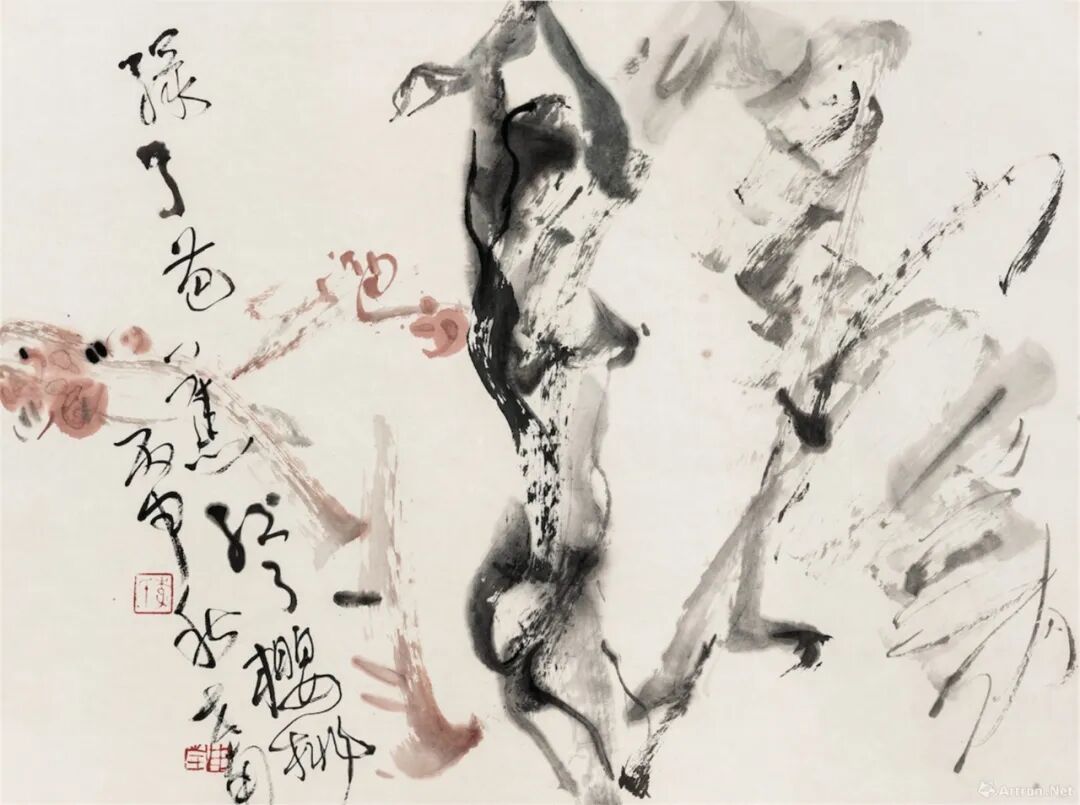 綠了芭蕉
红了櫻桃
丙申秋
Artron.Net